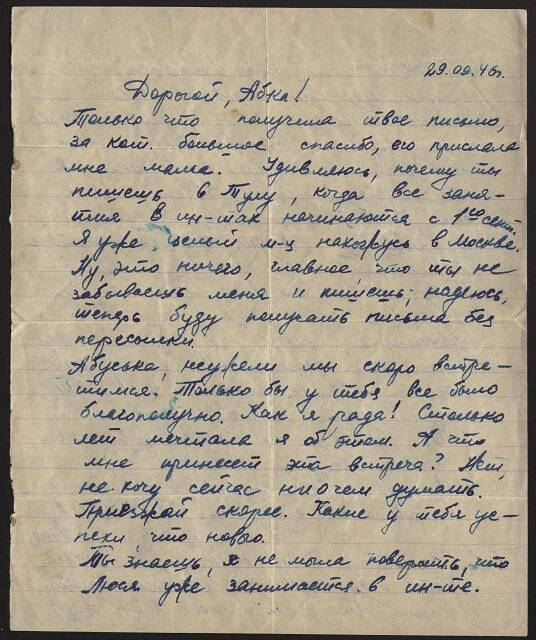 29.09.46г.
Дорогой, Абка!
Только что получила твое письмо,
за кот. большое спасибо, его прислала
мне мама. Удивляюсь, почему ты
пишешь в Тулу, когда все заня-
тия в ин-тах начинаются с 1го сент.
Я уже целый м-ц нахожусь в Москве.
Ну, это ничего, главное что ты не
забываешь меня и пишешь, надеюсь,
теперь буду получать письма без
пересылки.
Абуська, неужели мы скоро встре-
тимся. Только бы у тебя все было
благополучно. Как я рада! Столько
лет мечтала я об этом. А что
мне принесет эта встреча? Нет,
не хочу сейчас ни о чем думать.
Приезжай скорее. Какие у тебя ус-
пехи что нового.
Ты знаешь, я не могла поверить, что
Люся уже занимается в ин-те.